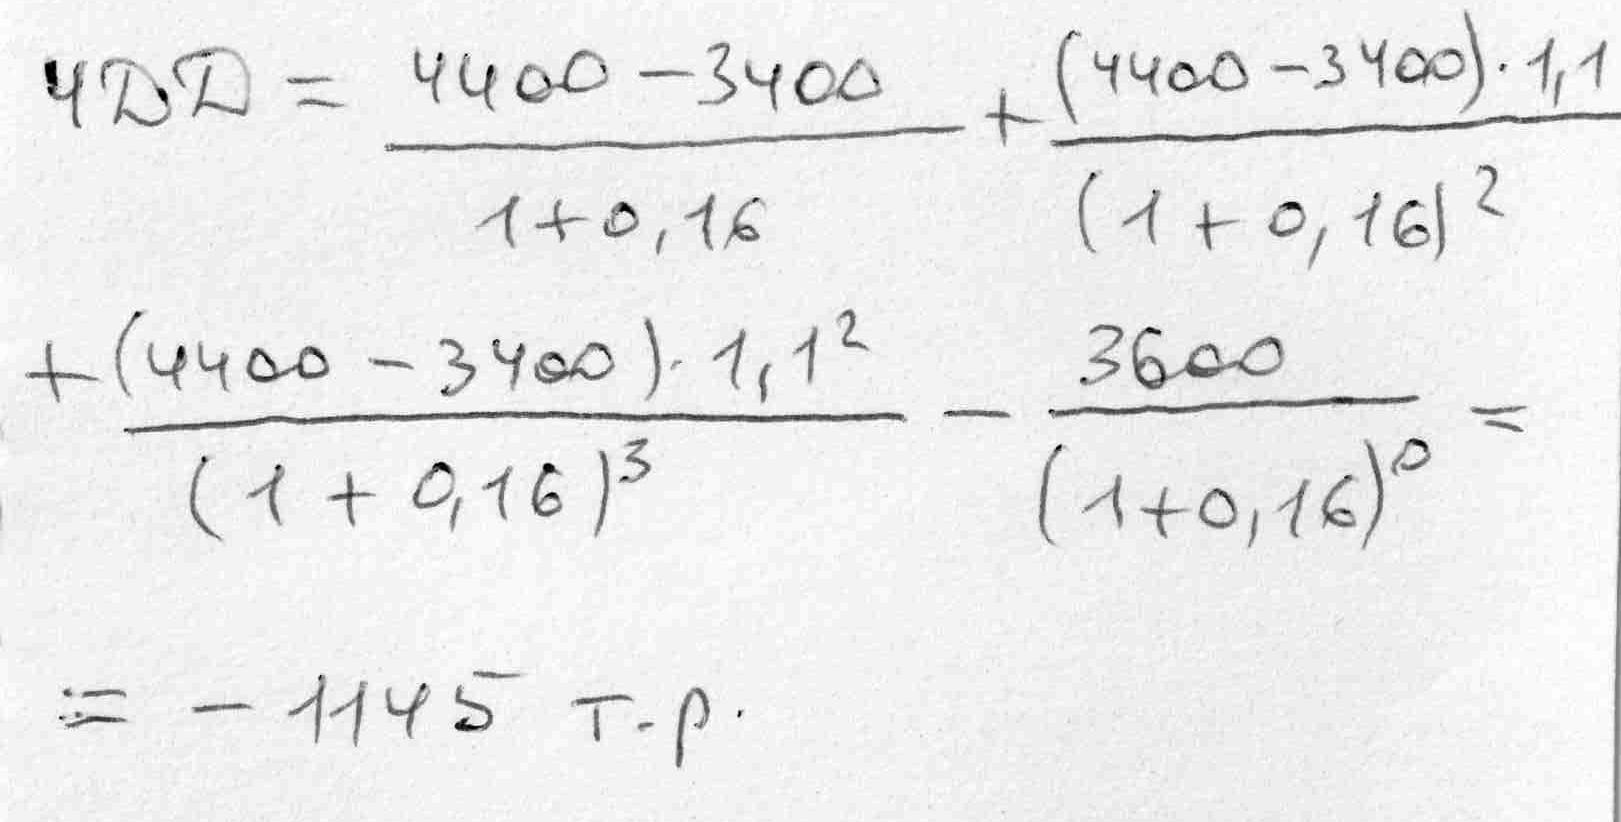 ЧДД = (4400 - 3400)/(1+0,16) + ((4400 - 3400)·1,1)/(1+0,16)²
+ ((4400 - 3400)·1,1²)/(1+0,16)³ - 3600/(1+0,16)⁰ =
= - 1145 т.р.